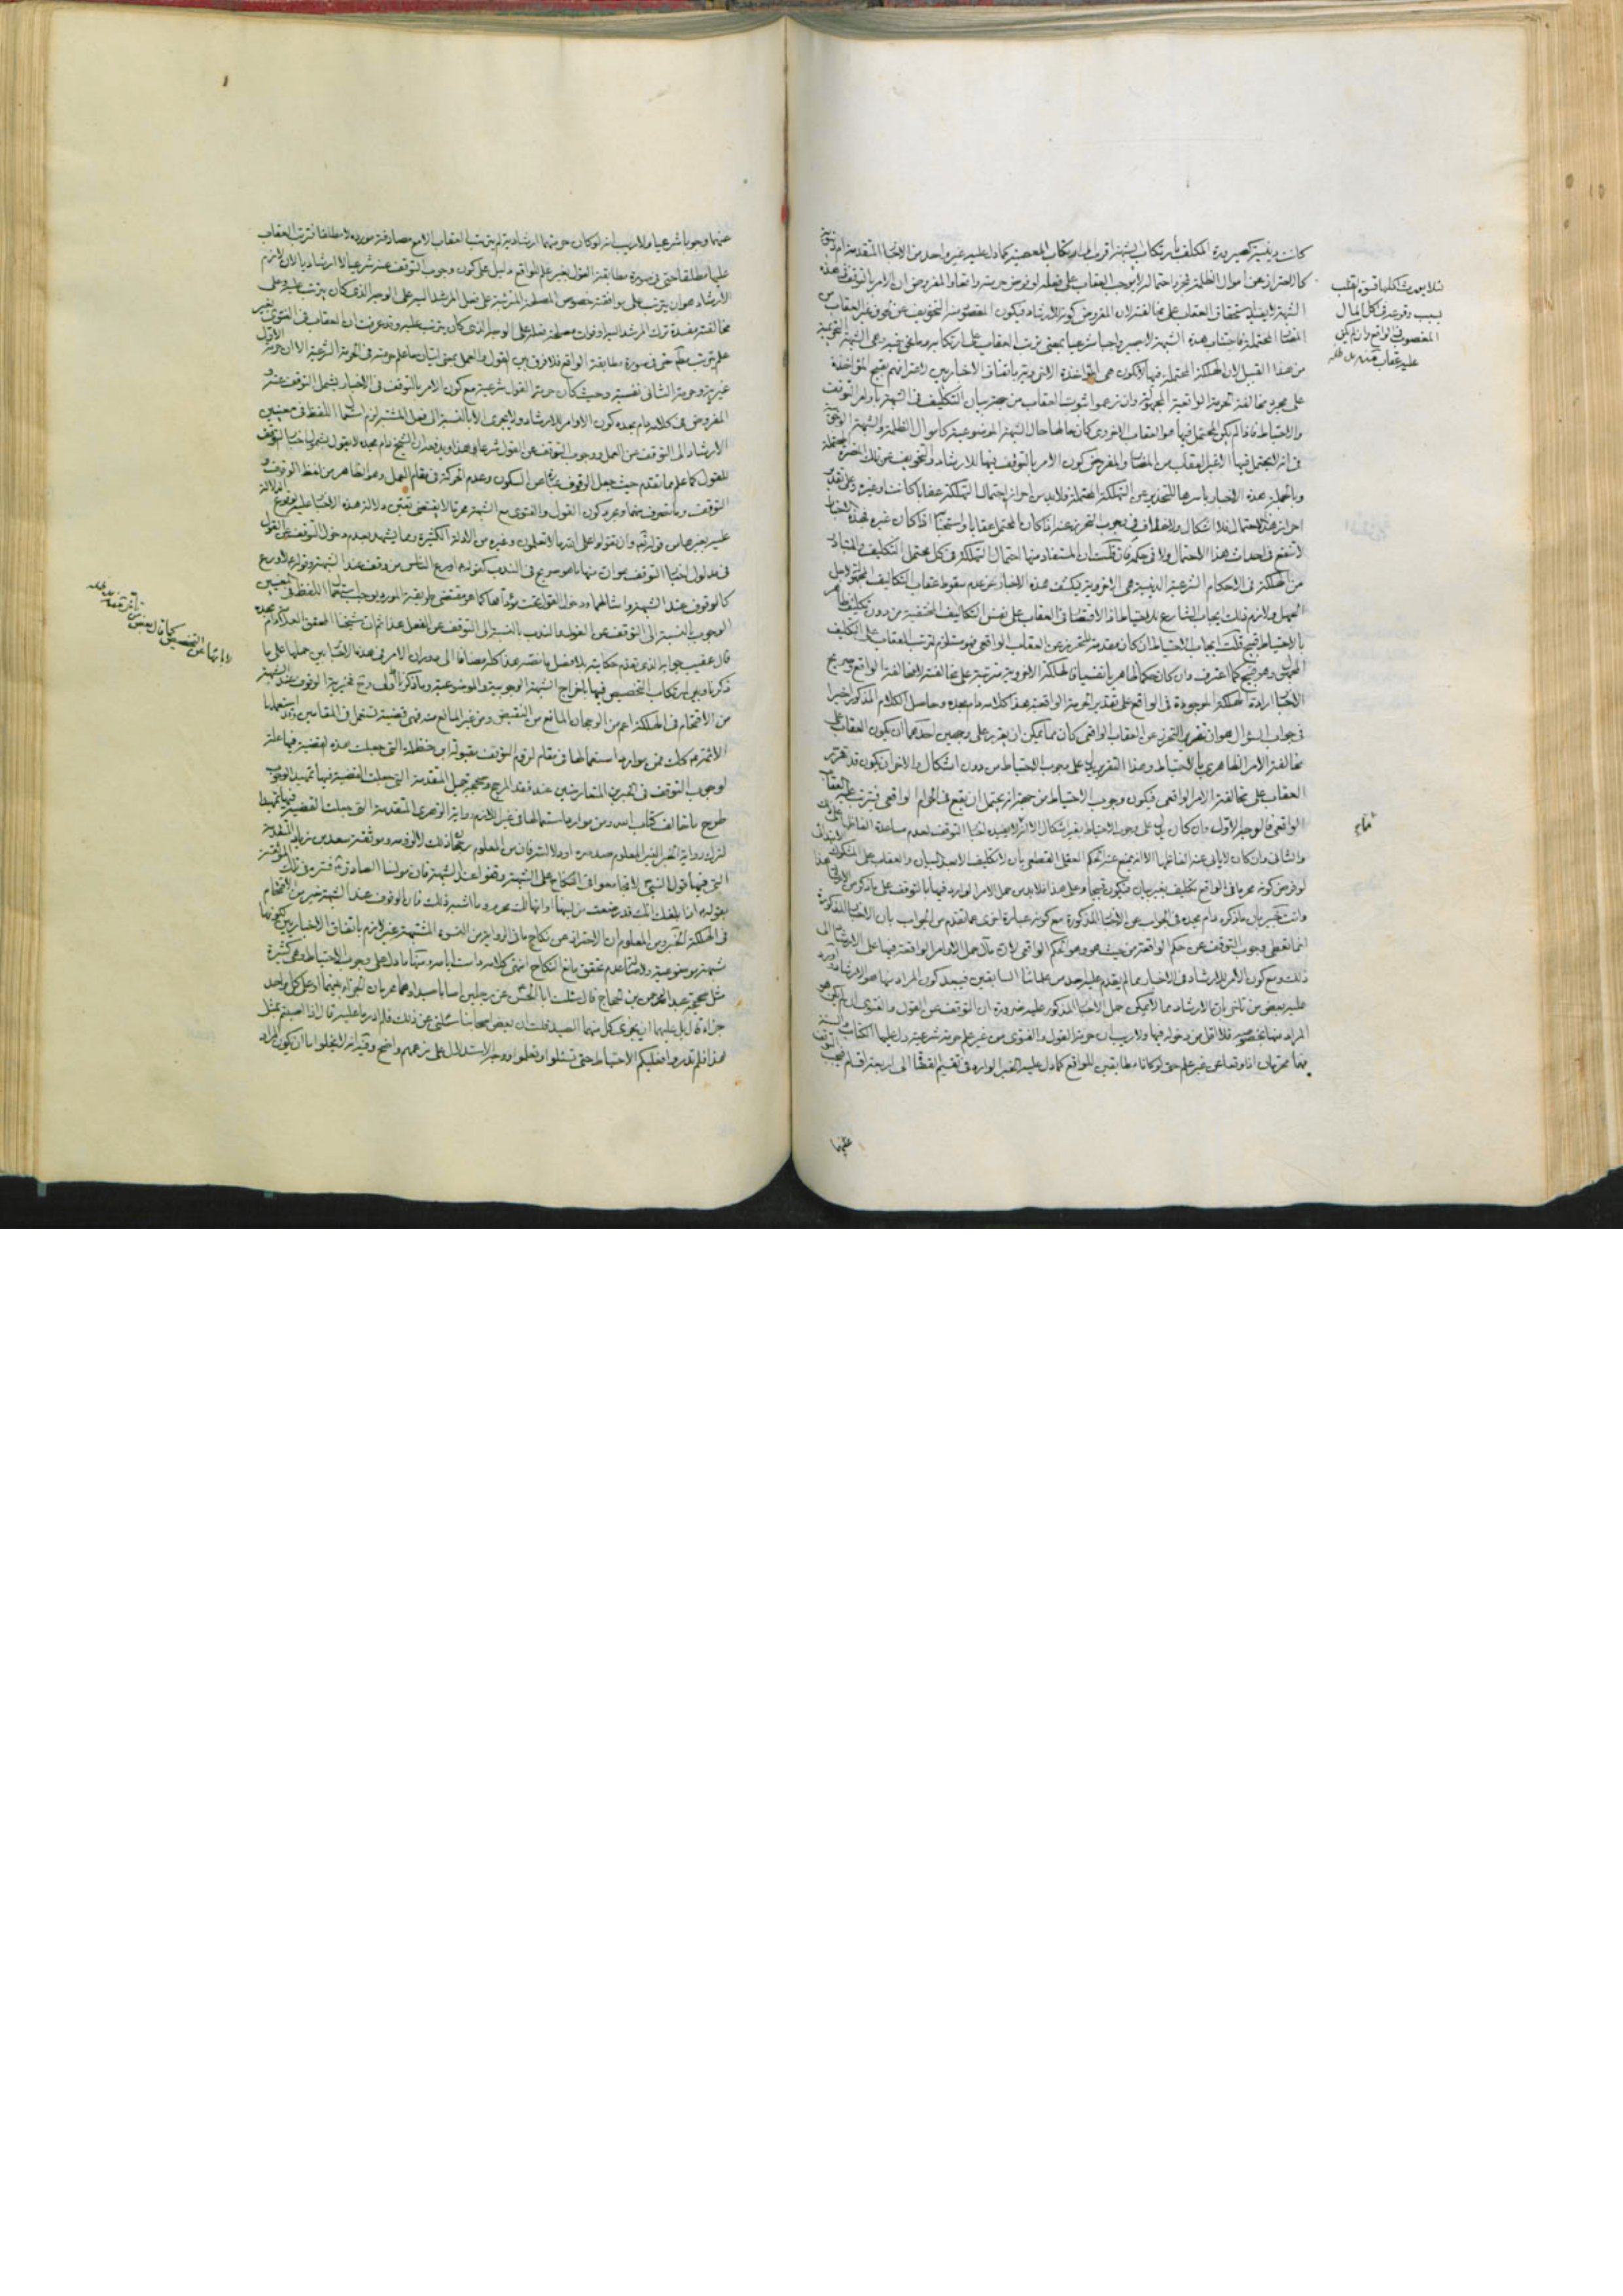 كانت دينية كصيرورة المكلف بارتكاب الشبهة اقرب الى ارتكاب المعصية كما دل عليه غير واحد من الاخبار المتقدمة ام دنيوية
كالاحتراز عن اموال الظلمة فمجرد احتماله لا يوجب العقاب على فعله لو فرض حرمته واقعا والمفروض ان الامر بالتوقف في هذه
الشبهة لا يفيد استحقاق العقاب على مخالفته لان المفروض كونه للارشاد فيكون المقصود منه التخويف عن لحوق غير العقاب من
المضار المحتملة فاجتناب هذه الشبهة لا يصير واجبا شرعيا بمعنى ترتب العقاب على ارتكابه وما نحن فيه وهي الشبهة التحريمية
من هذا القبيل لان الهلكة المحتملة فيها لا تكون هي المؤاخذة الاخروية باتفاق الاخباريين لاعترافهم بقبح المؤاخذة
على مجرد مخالفة الحرمة الواقعية المجهولة وان زعموا ثبوت العقاب من جهة بيان التكليف في الشبهة باوامر التوقف
والاحتياط فاذا لم يكن المحتمل فيها هو العقاب الاخروي كان حالها حال الشبهة الموضوعية كاموال الظلمة والشبهة الوجوبية
في انه لا يحتمل فيها الا غير العقاب من المضار والمفروض كون الامر بالتوقف فيها للارشاد والتخويف عن تلك المضرة المحتملة
وبالجملة هذه الاخبار باسرها للتحذير عن التهلكة المحتملة فلا بد من احراز احتمال التهلكة عقابا كانت او غيره وعلى تقدير
احراز هذا الاحتمال فلا اشكال ولا خلاف في وجوب التحرز عنه اذا كان المحتمل عقابا واستحبابه اذا كان غيره فهذه الاخبار
لا تنفع في احداث هذا الاحتمال ولا في حكمه فان قلت ان المستفاد منها احتمال التهلكة في كل محتمل التكليف والمتبادر
من الهلكة في الاحكام الشرعية الدينية هي الاخروية فيكشف هذه الاخبار عن عدم سقوط عقاب التكاليف المجهولة لاجل
الجهل ولازم ذلك ايجاب الشارع للاحتياط اذ الاقتصار في العقاب على نفس التكاليف المختفية من دون تكليف ظاهري
بالاحتياط قبيح قلت ايجاب الاحتياط ان كان مقدمة للتحرز عن العقاب الواقعي فهو مستلزم لترتب العقاب على التكليف
المجهول وهو قبيح كما اعترف وان كان حكما ظاهريا نفسيا فالهلكة الاخروية مترتبة على مخالفته لا مخالفة الواقع وصريح
الاخبار ارادة الهلكة الموجودة في الواقع على تقدير الحرمة الواقعية هذا كلامه دام مجده وحاصل الكلام المذكور اخيرا
في جواب السؤال هو ان تقرير التحرز عن العقاب الواقعي كان مما يمكن ان يقرر على وجهين احدهما ان يكون العقاب على
مخالفة الامر الظاهري بالاحتياط وهذا التقرير يدل على وجوب الاحتياط من دون اشكال والاخر ان يكون قد تقرر
العقاب على مخالفة الامر الواقعي فيكون وجوب الاحتياط من جهة انه يحتمل ان يقع في الحرام الواقعي فيترتب عليه العقاب
الواقعي فالوجه الاول وان كان يدل على وجوب الاحتياط بغير اشكال الا انه لا يفيده اخبار التوقف لعدم مساعدة الفاظها على ذلك
والثاني وان كان لا يابى عنه الفاظها الا انه يمنع عنه الحكم العقلي القطعي بان لا تكليف الا بعد البيان والعقاب على المشكوك
لو فرض كونه محرما في الواقع تكليف بغير بيان فيكون قبيحا وعلى هذا فلا بد من حمل الامر الوارد فيها بالتوقف على ما ذكر من الارشاد
وانت خبير بان ما ذكره دام مجده في الجواب عن الاخبار المذكورة مع كونه عبارة اخرى عما تقدم من الجواب بان الاخبار المذكورة
انما تقتضي وجوب التوقف عن حكم الواقعة من حيث هو وهو الحكم الواقعي لان مآل حمل الاوامر الواقعة فيها على الارشاد الى
ذلك ومع كون الامر للارشاد في الاخبار مما لم يقدم عليه احد من علمائنا السابقين فيبعد كون المراد بها هو الارشاد اورد
عليه بعض من تأخر بان الارشاد مما لا يمكن حمل الاخبار المذكور عليه ضرورة ان التوقف عن القول والفتوى ان لم يكن هو
المراد منها بخصوصه فلا اقل من دخوله فيها ولا ريب ان حرمة القول والفتوى من غير علم حرمة شرعية دل عليها الكتاب والسنة
فهما محرمان اذا وقعا عن غير علم حتى لو كانا مطابقين للواقع كما دل عليه الخبر الوارد في تقسيم القضاة الى اربعة اقسام فيجب التوقف
عنهما
بسبب وقوعه في اكل المال
المغصوب في الواقع وان لم يكن
عليه عقاب
عنهما وجوبا شرعيا ولا ريب انه لو كان حرمتهما ارشادية لم يترتب العقاب الا مع مصادفة مورده لا مطلقا فترتب العقاب
عليها مطلقا حتى في صورة مطابقة القول بغير علم للواقع دليل على كون وجوب التوقف عنه شرعيا لا ارشاديا لان لازم
الارشاد هو ان يترتب على موافقته خصوص المصلحة المترتبة على فعل المرشد اليه على الوجه الذي كان يترتب عليه وعلى
مخالفته مفسدة ترك المرشد اليه او فوت مصلحة فعله على الوجه الذي كان يترتب عليه وقد عرفت ان العقاب في الفتوى بغير
علم يترتب عليه حتى في صورة مطابقة الواقع فلا فرق بين القول والعمل بمعنى اتيان ما علم حرمته في الحرمة الشرعية الا ان حرمة الاول
غيرية وحرمة الثاني نفسية وحيث كان حرمة القول شرعية مع كون الامر بالتوقف في الاخبار يشمل التوقف عنه و
المفروض في كلامه دام مجده كون الاوامر للارشاد ولا يجري الا بالنسبة الى فعل المشتبه لزم استعمال اللفظ في معنيين
الارشاد الى التوقف عن العمل ووجوب التوقف عن القول شرعا وهذا وارد قدر ان الشيخ دام مجده لا يقول بشمول اخبار التوقف
للقول كما علم مما تقدم حيث جعل الوقوف عبارة عن السكون وعدم الحركة في مقام العمل وهو الظاهر من لفظ الوقوف و
التوقف وما تصرف منهما ومجرد كون القول والفتوى مع الشبهة محرما لا يقتضي تعين دلالة هذه الاخبار عليه لوقوع الدلالة
عليه بغيرها من قوله تعالى وان تقولوا على الله ما لا تعلمون وغيره من الادلة الكثيرة ومما يشهد بعدم دخول التوقف عن القول
في مدلول اخبار التوقف هو ان منها ما هو صريح في الندب كقوله اورع الناس من وقف عند الشبهة وقوله لا ورع
كالوقوف عند الشبهة وامثالهما ودخول القول تحت مؤداها كما هو مقتضى طريقة المورد يوجب استعمال اللفظ في المعنيين
الوجوب بالنسبة الى التوقف عن القول والندب بالنسبة الى التوقف عن الفعل هذا ثم ان شيخنا المحقق العلامة دام مجده
قال عقيب جوابه الذي تقدم حكايته بلا فصل ما نصه هذا كله مضافا الى دوران الامر في هذه الاخبار بين حملها على ما
ذكرنا وبين ارتكاب التخصيص فيها باخراج الشبهة الوجوبية والموضوعية وما ذكرنا اولى وح فخيرية الوقوف عند الشبهة
من الاقتحام في الهلكة اعم من الرجحان المانع من النقيض ومن غير المانع منه فهي قضية تستعمل في المقامين وقد استعملها
الائمة ع كذلك فمن موارد استعمالها في مقام لزوم التوقف مقبولة ابن حنظلة التي جعلت هذه القضية فيها علة
لوجوب التوقف في الخبرين المتعارضين عند فقد المرجح وصحيحة جميل المتقدمة التي جعلت القضية فيها تمهيدا لوجوب
طرح ما خالف كتاب الله ومن موارد استعمالها في غير اللازم رواية الزهري المتقدمة التي جعلت القضية فيها تمهيدا
لترك رواية الخبر الغير المعلوم صدوره او دلالته فان من المعلوم رجحان ذلك لا لزومه وموثقة سعد بن زياد المتقدمة
التي فيها قول النبي ص لا تجامعوا في النكاح على الشبهة وقفوا عند الشبهة فان مولينا الصادق ع فسره في تلك الموثقة
بقوله اذا بلغك انك قد رضعت من لبنها او انها لك محرم وما اشبه ذلك فان الوقوف عند الشبهة خير من الاقتحام
في الهلكة الخبر ومن المعلوم ان الاحتراز عن نكاح ما في الرواية من النسوة المشتبهة غير لازم باتفاق الاخباريين لكونها
شبهة موضوعية ولاصالة عدم تحقق مانع النكاح انتهى كلامه دامت ايام سعادته ما دل على وجوب الاحتياط وهي كثيرة
مثل صحيحة عبد الرحمن بن الحجاج قال سئلت ابا الحسن عن رجلين اصابا صيدا وهما محرمان الجزاء بينهما او على كل واحد
جزاء قال بل عليهما ان يجزي كل منهما الصيد قلت ان بعض اصحابنا سئلني عن ذلك فلم ادر ما عليه قال اذا اصبتم بمثل
هذا فلم تدروا فعليكم الاحتياط حتى تسئلوا وتعلموا ووجه الاستدلال على زعمهم واضح وفيه انه لا يخلو اما ان يكون المراد